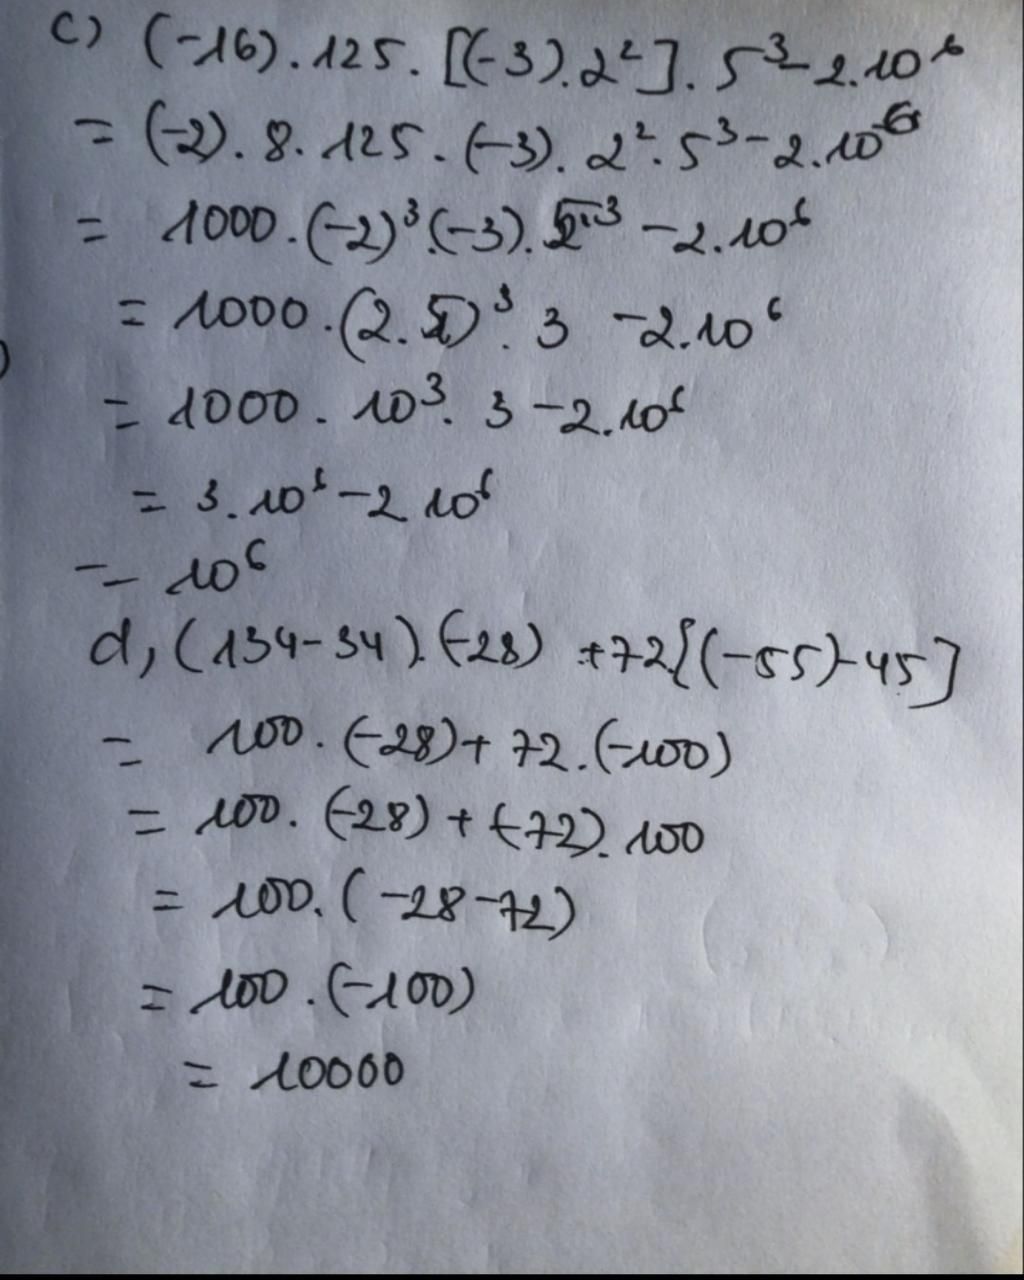 c) (-16).125.[(-3).2²].5³-2.10⁶
= (-2).8.125.(-3).2².5³-2.10⁶
= 1000.(-2)³.(-3).5³-2.10⁶
= 1000.(2.5)³.3 -2.10⁶
= 1000.10³.3-2.10⁶
= 3.10⁶-2 10⁶
= 10⁶
d, (134-34).(-28) +72[(-55)-45]
= 100.(-28)+72.(-100)
= 100.(-28)+(-72).100
= 100.(-28-72)
= 100.(-100)
= 10000